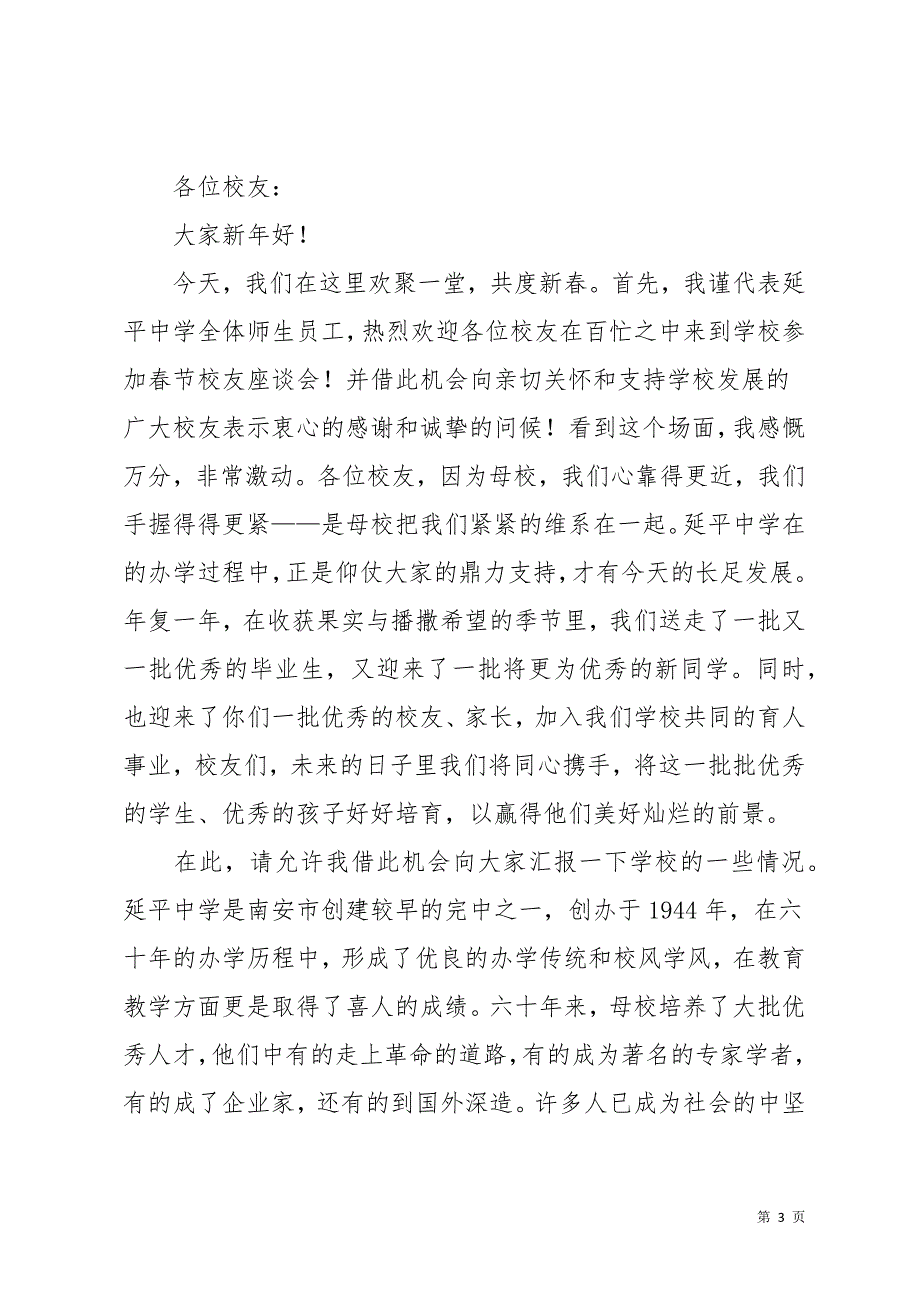 各位校友：
大家新年好！
今天，我们在这里欢聚一堂，共度新春。首先，我谨代表延
平中学全体师生员工，热烈欢迎各位校友在百忙之中来到学校参
加春节校友座谈会！并借此机会向亲切关怀和支持学校发展的
广大校友表示衷心的感谢和诚挚的问候！看到这个场面，我感慨
万分，非常激动。各位校友，因为母校，我们心靠得更近，我们
手握得得更紧——是母校把我们紧紧的维系在一起。延平中学在
的办学过程中，正是仰仗大家的鼎力支持，才有今天的长足发展。
年复一年，在收获果实与播撒希望的季节里，我们送走了一批又
一批优秀的毕业生，又迎来了一批将更为优秀的新同学。同时，
也迎来了你们一批优秀的校友、家长，加入我们学校共同的育人
事业，校友们，未来的日子里我们将同心携手，将这一批批优秀
的学生、优秀的孩子好好培育，以赢得他们美好灿烂的前景。
在此，请允许我借此机会向大家汇报一下学校的一些情况。
延平中学是南安市创建较早的完中之一，创办于 1944 年，在六
十年的办学历程中，形成了优良的办学传统和校风学风，在教育
教学方面更是取得了喜人的成绩。六十年来，母校培养了大批优
秀人才，他们中有的走上革命的道路，有的成为著名的专家学者，
有的成了企业家，还有的到国外深造。许多人已成为社会的中坚
第 3 页